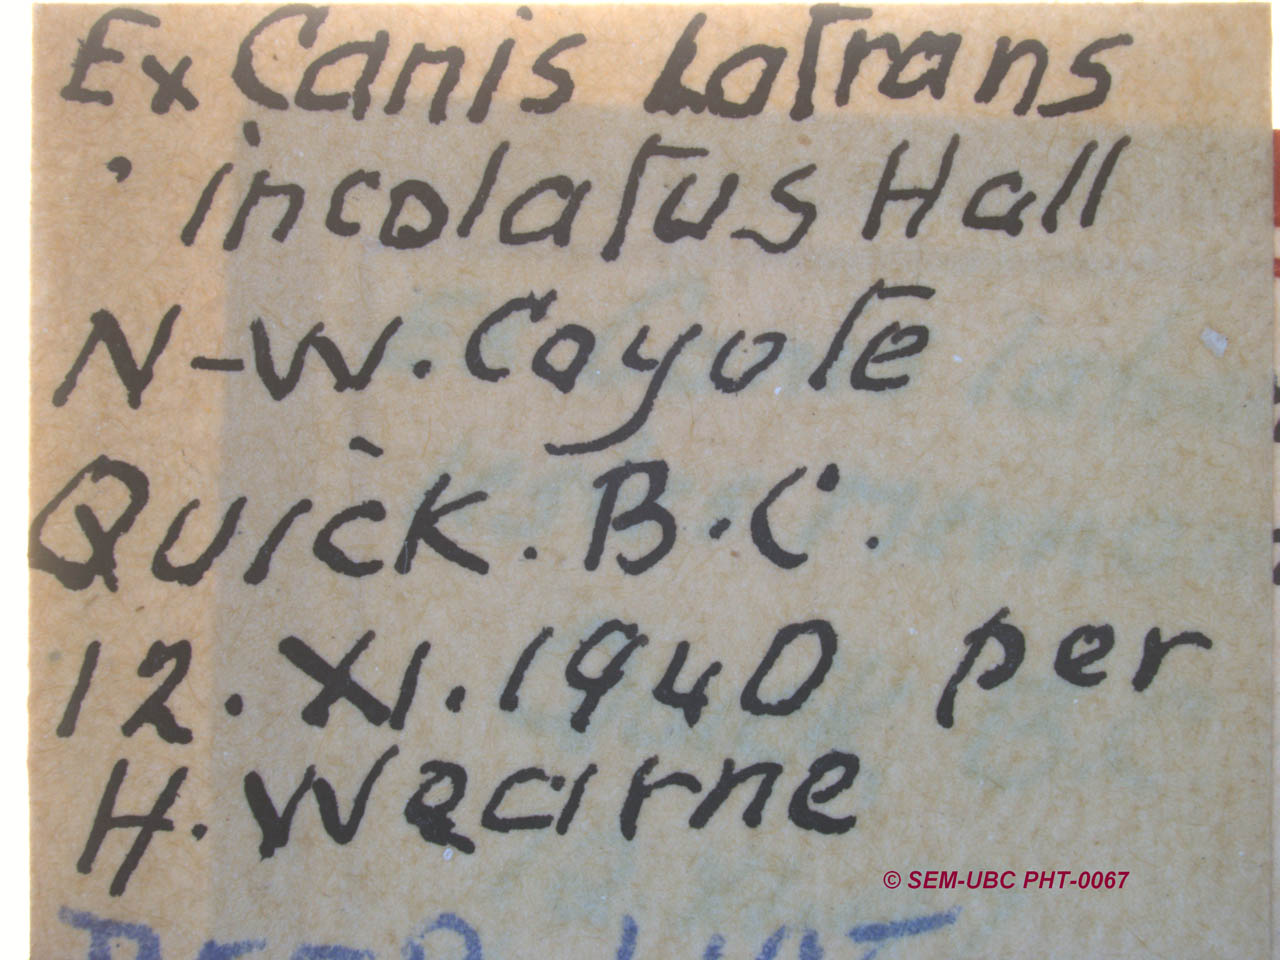 Ex Canis Latrans
incolatus Hall
N-W. Coyote
Quick. B.C.
12. XI. 1940 per
H. Wearne
© SEM-UBC PHT-0067